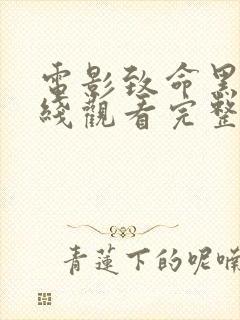 電影致命黑
綫觀看完整
青蓮下的呢喃